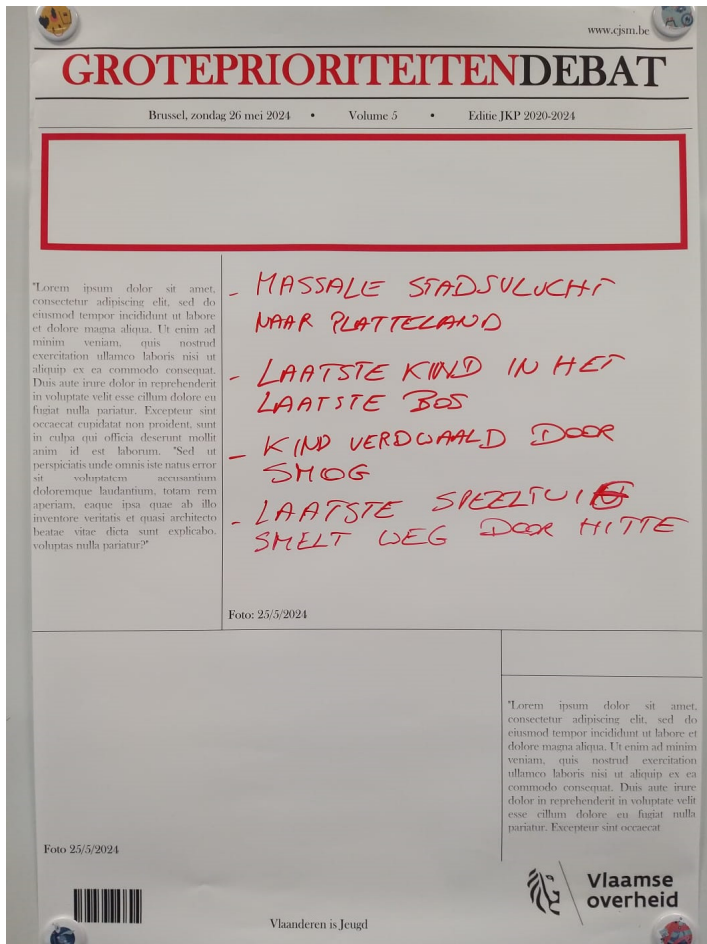 www.cjsm.be
GROTEPRIORITEITENDEBAT
Brussel, zondag 26 mei 2024 • Volume 5 • Editie JKP 2020-2024
"Lorem ipsum dolor sit amet,
consectetur adipiscing elit, sed do
eiusmod tempor incididunt ut labore
et dolore magna aliqua. Ut enim ad
minim veniam, quis nostrud
exercitation ullamco laboris nisi ut
aliquip ex ea commodo consequat.
Duis aute irure dolor in reprehenderit
in voluptate velit esse cillum dolore eu
fugiat nulla pariatur. Excepteur sint
occaecat cupidatat non proident, sunt
in culpa qui officia deserunt mollit
anim id est laborum. "Sed ut
perspiciatis unde omnis iste natus error
sit voluptatem accusantium
doloremque laudantium, totam rem
aperiam, eaque ipsa quae ab illo
inventore veritatis et quasi architecto
beatae vitae dicta sunt explicabo.
voluptas nulla pariatur?"
- MASSALE STADSVLUCHT
NAAR PLATTELAND
- LAATSTE KIND IN HET
LAATSTE BOS
- KIND VERDWAALD DOOR
SMOG
- LAATSTE SPEELTUIG
SMELT WEG DOOR HITTE
Foto: 25/5/2024
Foto 25/5/2024
"Lorem ipsum dolor sit amet,
consectetur adipiscing elit, sed do
eiusmod tempor incididunt ut labore et
dolore magna aliqua. Ut enim ad minim
veniam, quis nostrud exercitation
ullamco laboris nisi ut aliquip ex ea
commodo consequat. Duis aute irure
dolor in reprehenderit in voluptate velit
esse cillum dolore eu fugiat nulla
pariatur. Excepteur sint occaecat
Vlaamse
overheid
Vlaanderen is Jeugd